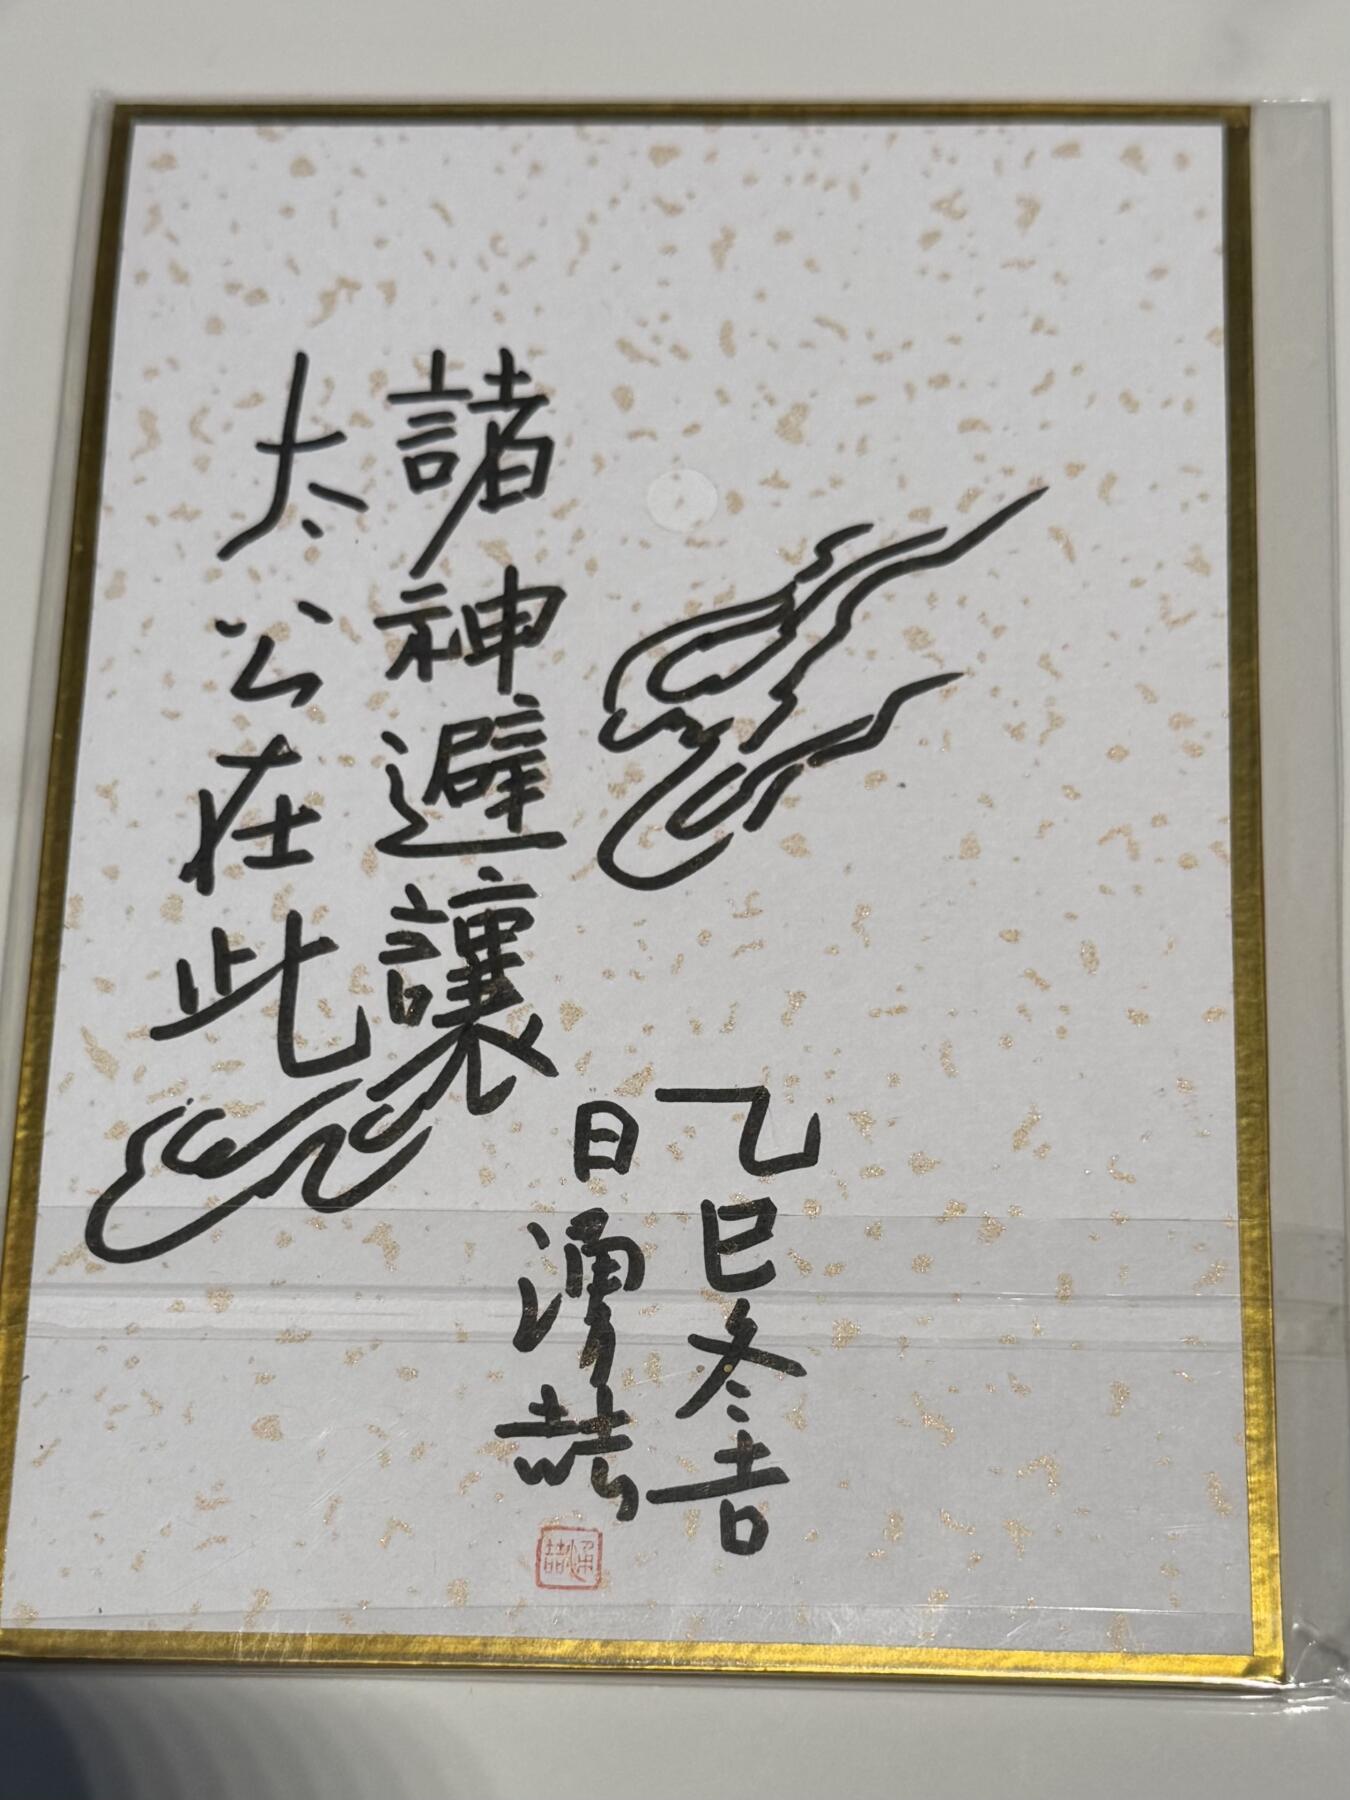 太公在此
諸神避讓
乙巳冬吉
日湧喆